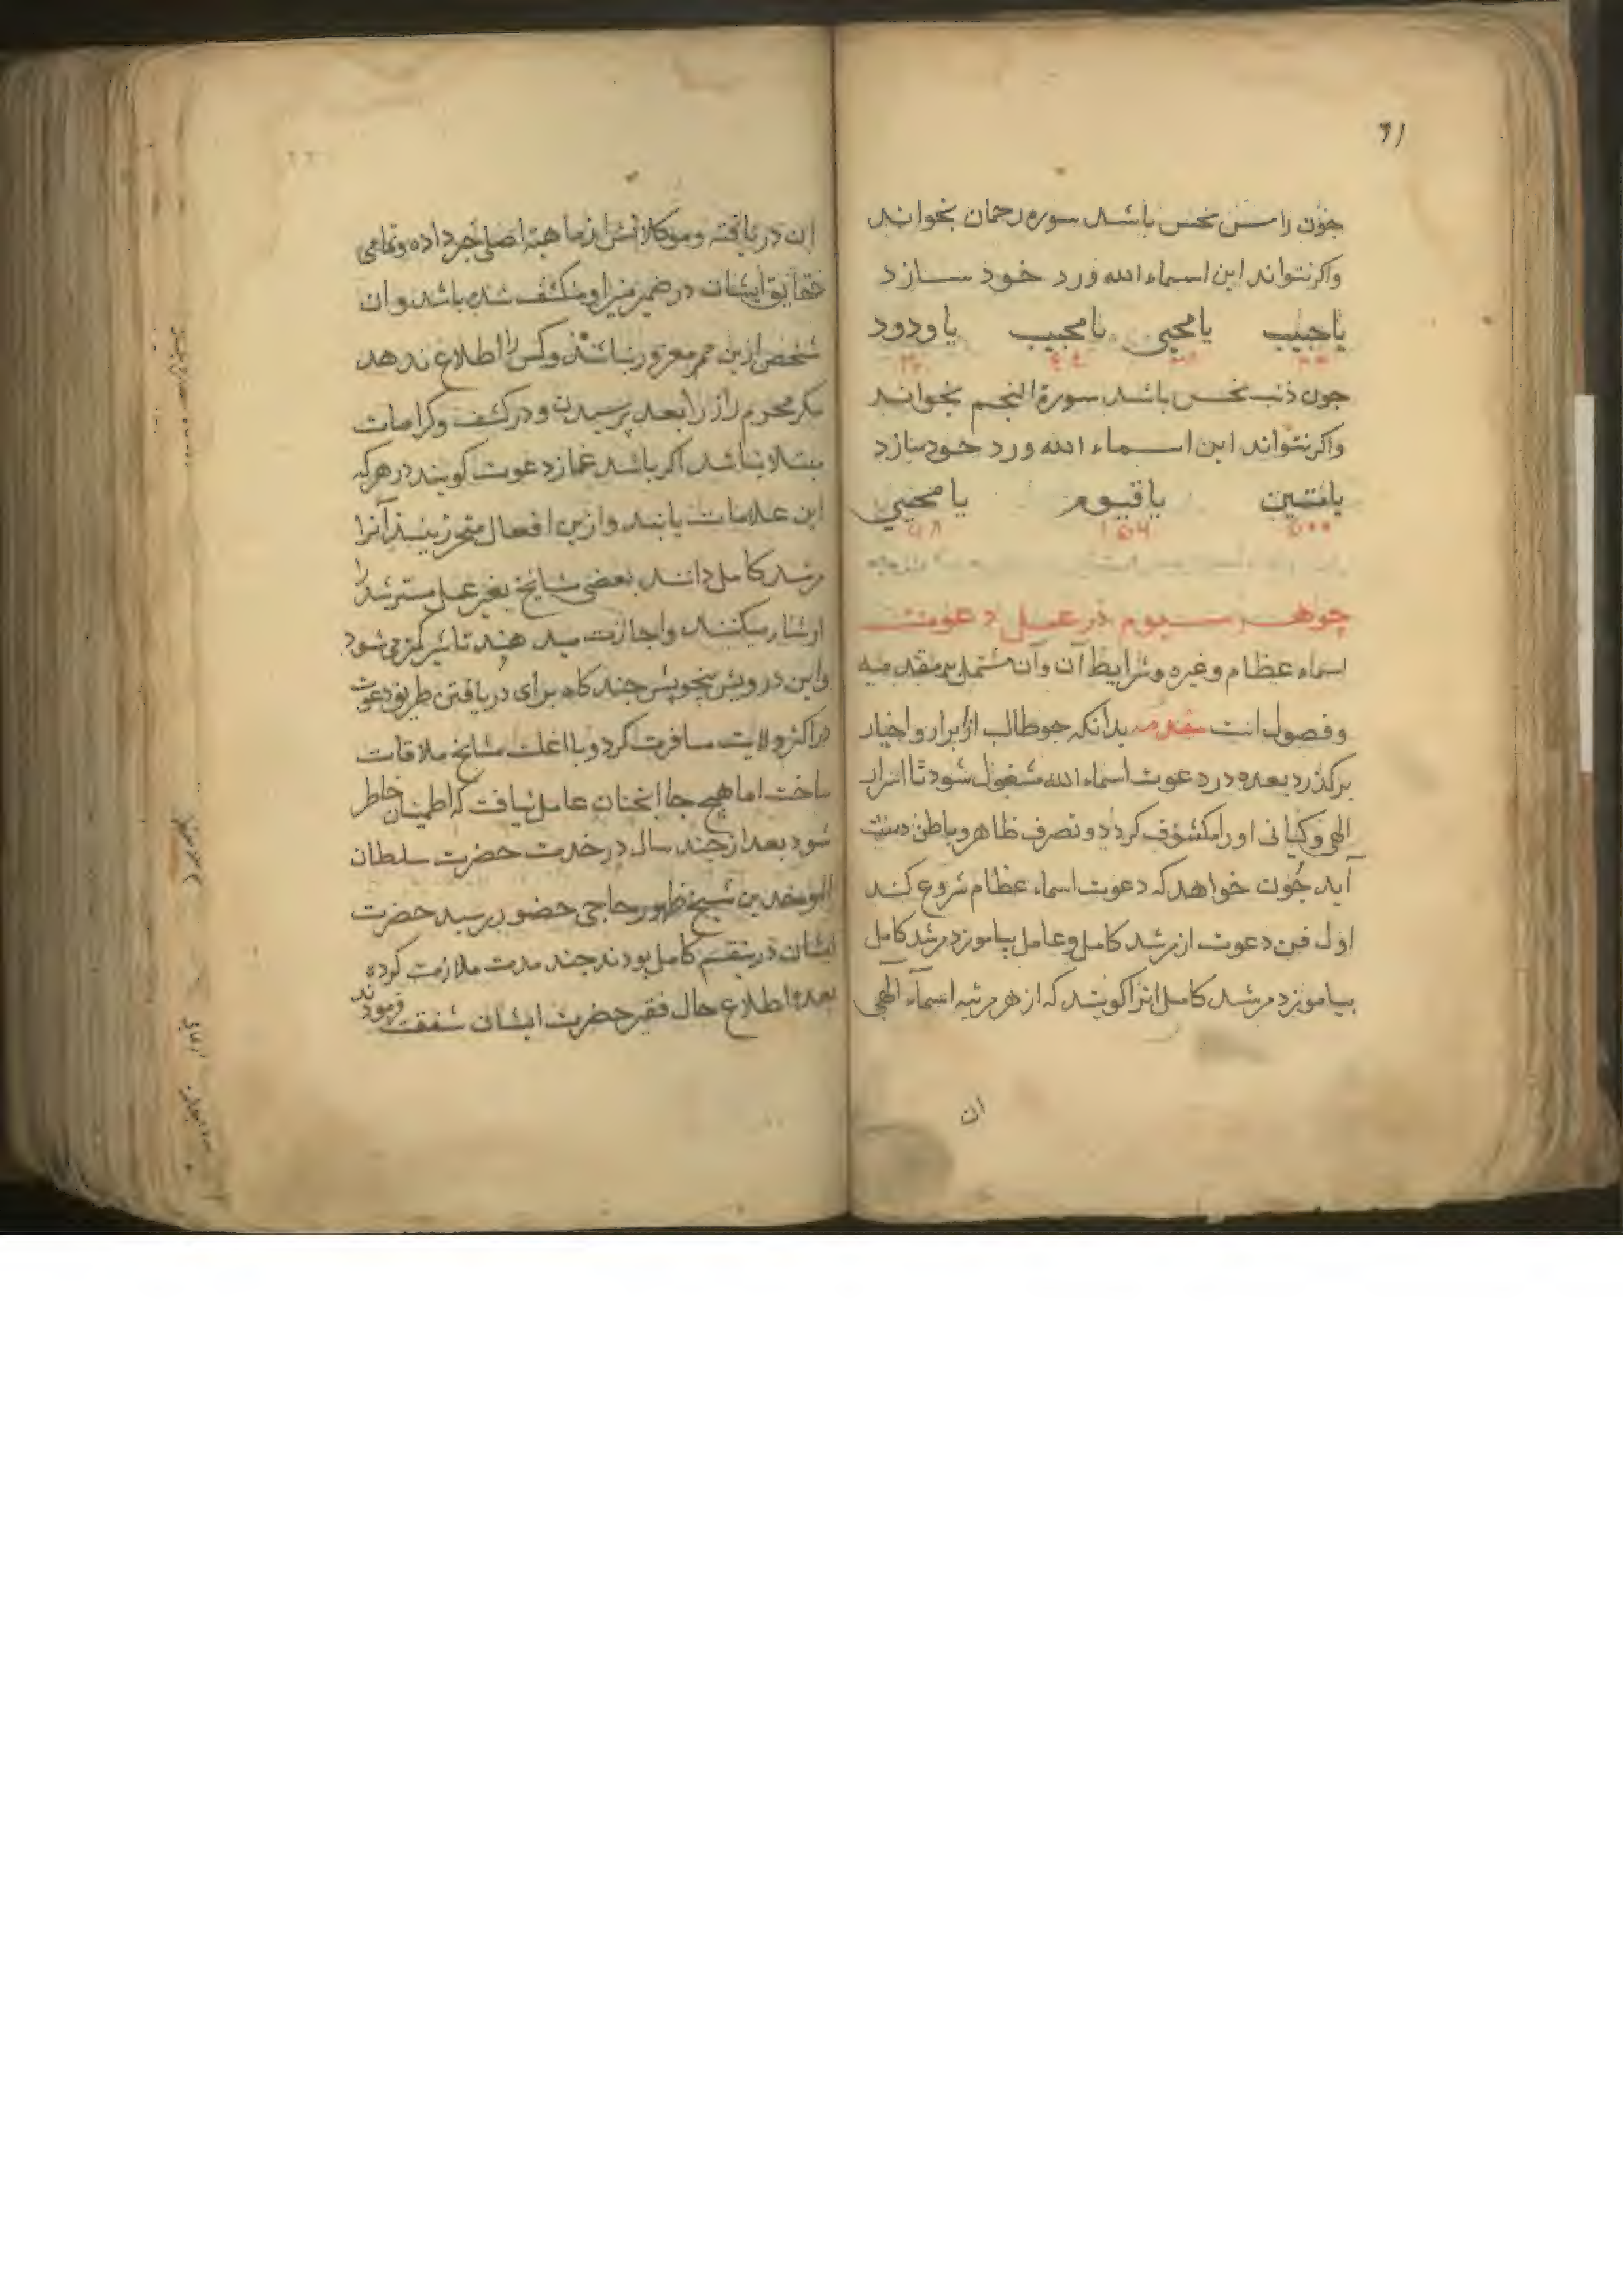 ٦١
چون راس نحس باشد سوره رحمان بخواند
واکر نتواند این اسماء الله ورد خود سازد
یا محیی یا مجیب یا ودود
چون ذنب نحس باشد سورة النجم بخواند
واکر نتواند این اسماء الله ورد خود سازد
یا متین یا قیوم یا محیی
٥٠٠ ١٥٦ ٦٨
جوهر سیوم در عمل دعوت
اسماء عظام وغیره وشرایط آن وآن مشتمل بر مقدمه
وفصول است مقدمه بدانکه جو طالب از ابرار واخیار
برکذرد بعده در دعوت اسماء الله مشغول شود تا اسرار
الهی وکیانی اورا مکشوف کردد وتصرف ظاهر وباطن دست
آید چون خواهد که دعوت اسماء عظام شروع کند
اول فن دعوت از مرشد کامل وعامل بیاموزد مرشد کامل
بیاموزد مرشد کامل انرا کویند که از هر مرتبه اسمآء الهی
ان
ان دریافته وموکلانش از ماهیة اصلی خبر داده وتمامی
حقایق ایشان در ضمیر منیر او منکشف شده باشد وان
شخص ازین ممر مغرور نباشد وکس را اطلاع ندهد
مکر محرم راز را بعد پرسیدن ودر کشف وکرامات
مبتلا نباشد اکر باشد غماز دعوت کویند در هر که
این علامات یابند وازین افعال متحرز بینند آنرا
مرشد کامل دانند بعضی مشایخ بغیر عمل مسترشد را
ارشاد میکنند واجازت میدهند تاثیر کمتر می شود
واین درویش چند کاه برای دریافتن طریق دعوت
در اکثر ولایت مسافرت کرد وبا اغلب مشایخ ملاقات
ساخت اما هیچ جا انچنان عامل نیافت که اطمینان خاطر
شود بعد از چند سال در خدمت حضرت سلطان
الموحدین شیخ ظهور حاجی حضور رسید حضرت
ایشان درینقسم کامل بودند چند مدت ملازمت کرده
بعده اطلاع حال فقیر حضرت ایشان شفقت فرمودند